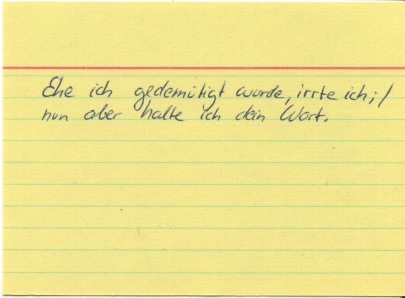 Ehe ich gedemütigt wurde, irrte ich; /
nun aber halte ich dein Wort.